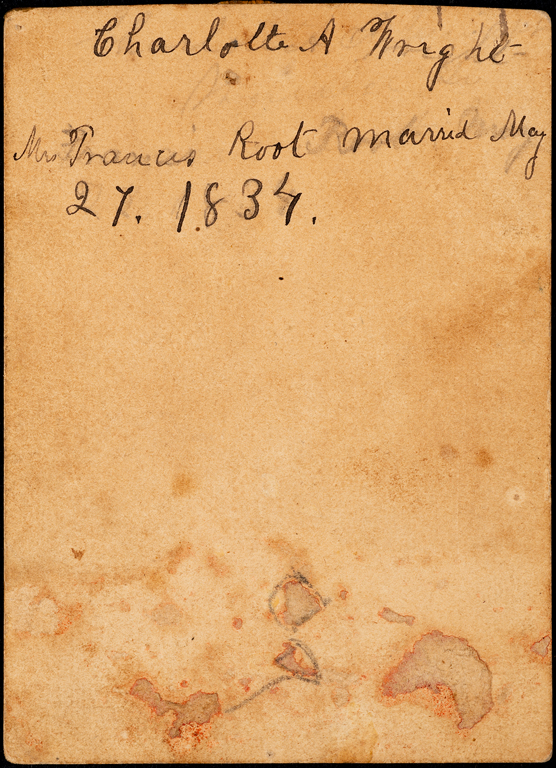 Charlotte A Wright
Mrs Francis Root Marrid May
27. 1834.